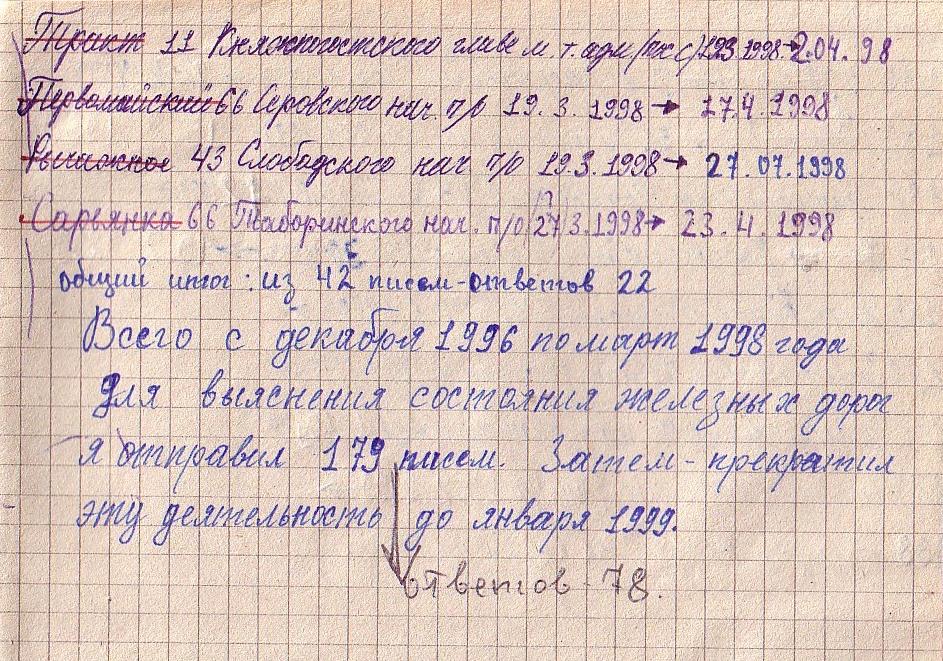 Тракт 11 Княжпогостского главе м. т. адм (ж с) 19.3.1998→2.04.98
Первомайский 66 Серовского нач. п/о 19.3.1998→ 17.4.1998
43 Слободского нач п/о 19.3.1998→ 27.07.1998
Сарьянка 66 Таборинского нач. п/о 27 3.1998→ 23.4.1998
общий итог: из 42 писем-ответов 22
Всего с декабря 1996 по март 1998 года
Для выяснения состояния железных дорог
я отправил 179 писем. Затем-прекратил
эту деятельность до января 1999.
ответов-78.